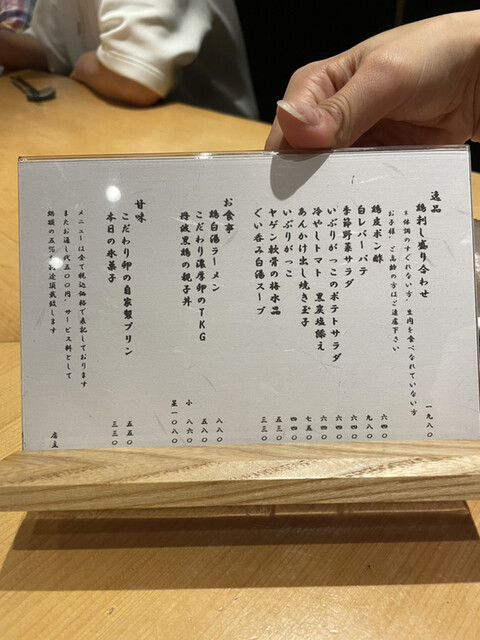 逸品
鶏刺し盛り合わせ 一九八〇
※体調のすぐれない方、生肉を食べなれていない方
お子様・ご高齢の方はご遠慮下さい
鶏皮ポン酢 六四〇
白レバーパテ 九八〇
季節野菜サラダ 六四〇
いぶりがっこのポテトサラダ 六四〇
冷やしトマト 黒炭塩添え 六四〇
あんかけ出し焼き玉子 七五〇
いぶりがっこ 四四〇
ヤゲン軟骨の梅水晶 五三〇
ぐい呑み白湯スープ 三三〇
お食事
鶏白湯ラーメン 八八〇
こだわり濃厚卵のTKG 五八〇
丹波黒鶏の親子丼 小 八六〇
一〇八〇
甘味
こだわり卵の自家製プリン 五五〇
本日の氷菓子 三三〇
メニューは全て税込価格で表記しております
またお通し代五〇〇円、サービス料として
総額の五%を別途頂戴致します
店主